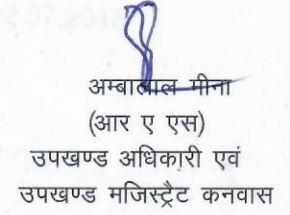 अम्बालाल मीना
(आर ए एस)
उपखण्ड अधिकारी एवं
उपखण्ड मजिस्ट्रैट कनवास